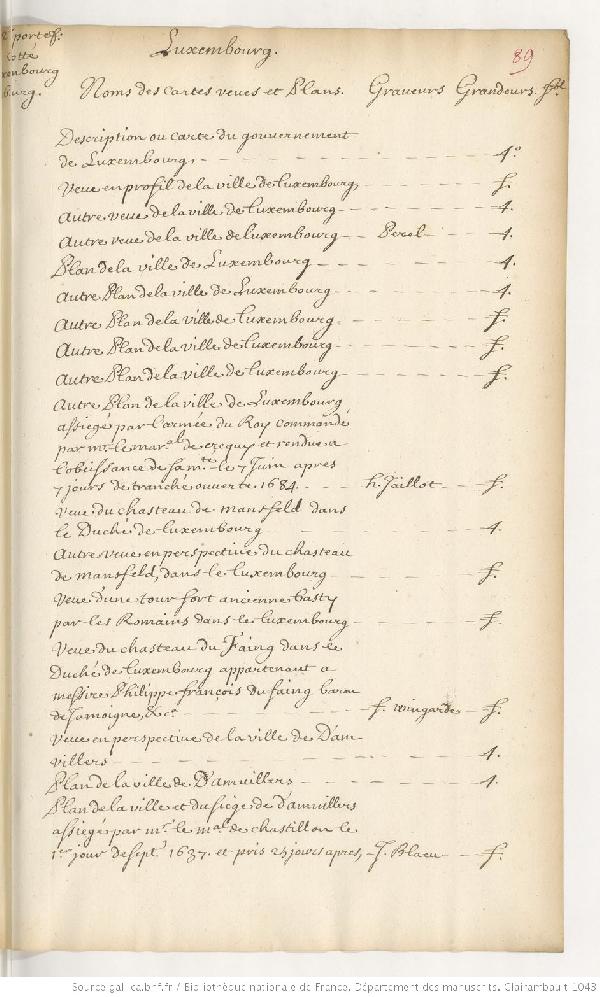 portef.
cotté
xembourg
burg.
Luxembourg.
89
Noms des cartes veues et Plans. Graveurs Grandeurs. fol.
Description ou carte du gouvernement
de Luxembourg, - - - - 4°
Veue en profil de la ville de luxembourg, - - - f.
Autre veue de la ville de luxembourg - - - 4.
Autre veue de la ville de luxembourg - - Perel - - 4.
Plan de la ville de Luxembourg - - - 4.
Autre Plan de la ville de Luxembourg - - - 4.
Autre Plan de la ville de luxembourg - - - f.
Autre Plan de la ville de luxembourg - - - f.
Autre Plan de la ville de luxembourg - - - f.
Autre Plan de la ville de Luxembourg
assiegé par l'armée du Roy commandé
par mr. le maral. de crequy et rendue a
l'obeissance de sa mté. le 7 Juin apres
7 jours de tranché ouverte. 1684. - - h. Jaillot - - f.
Veue du chasteau de mansfeld dans
le Duché de luxembourg - - - 4.
Autre veue en perspective du chasteau
de mansfeld, dans le luxembourg - - - f.
Veue d'une tour fort ancienne basty
par les Romains dans le luxembourg - - - f.
Veue du chasteau du Faing dans le
Duché de luxembourg appartenant a
messire Philippe françois du faing baron
de Jamoigne, &ca. - - - f. wingarde - f.
Veue en perspective de la ville de Dam-
villers - - - 4.
Plan de la ville de Damvillers - - - 4.
Plan de la ville et du siége de damvillers
assiegé par mr. le mal. de chastillon le
1er jour de sept. 1637. et pris 25 jours apres, - J. Blaeu - f.
Source gallica.bnf.fr / Bibliothèque nationale de France. Département des manuscrits. Clairambault 1043